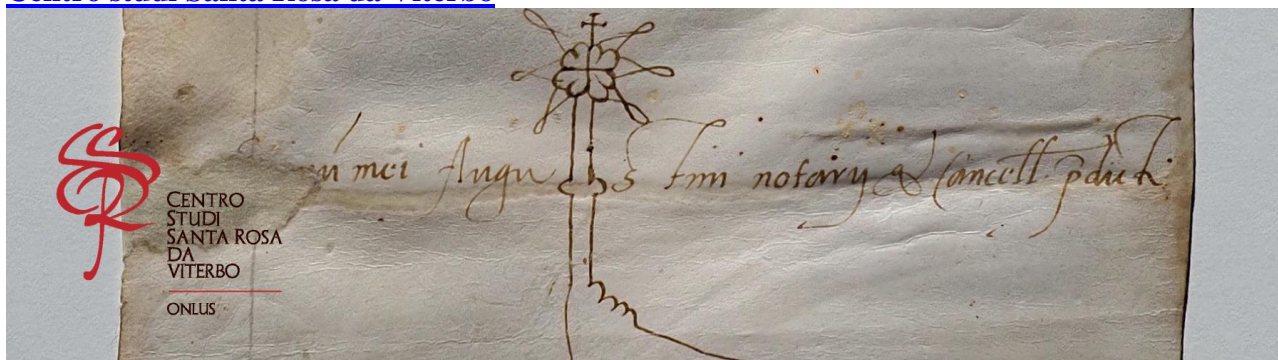 Centro studi Santa Rosa da Viterbo
mei Augu s tini notarij & Cancell
CENTRO
STUDI
SANTA ROSA
DA
VITERBO
ONLUS